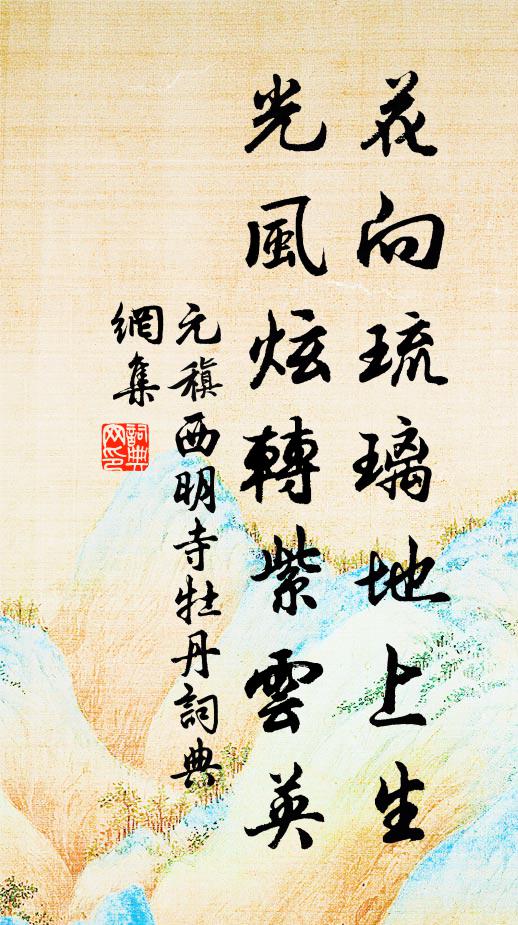 花向琉璃地上生
光風炫轉紫雲英
元稹西明寺牡丹詞典
網集
詞典
网印